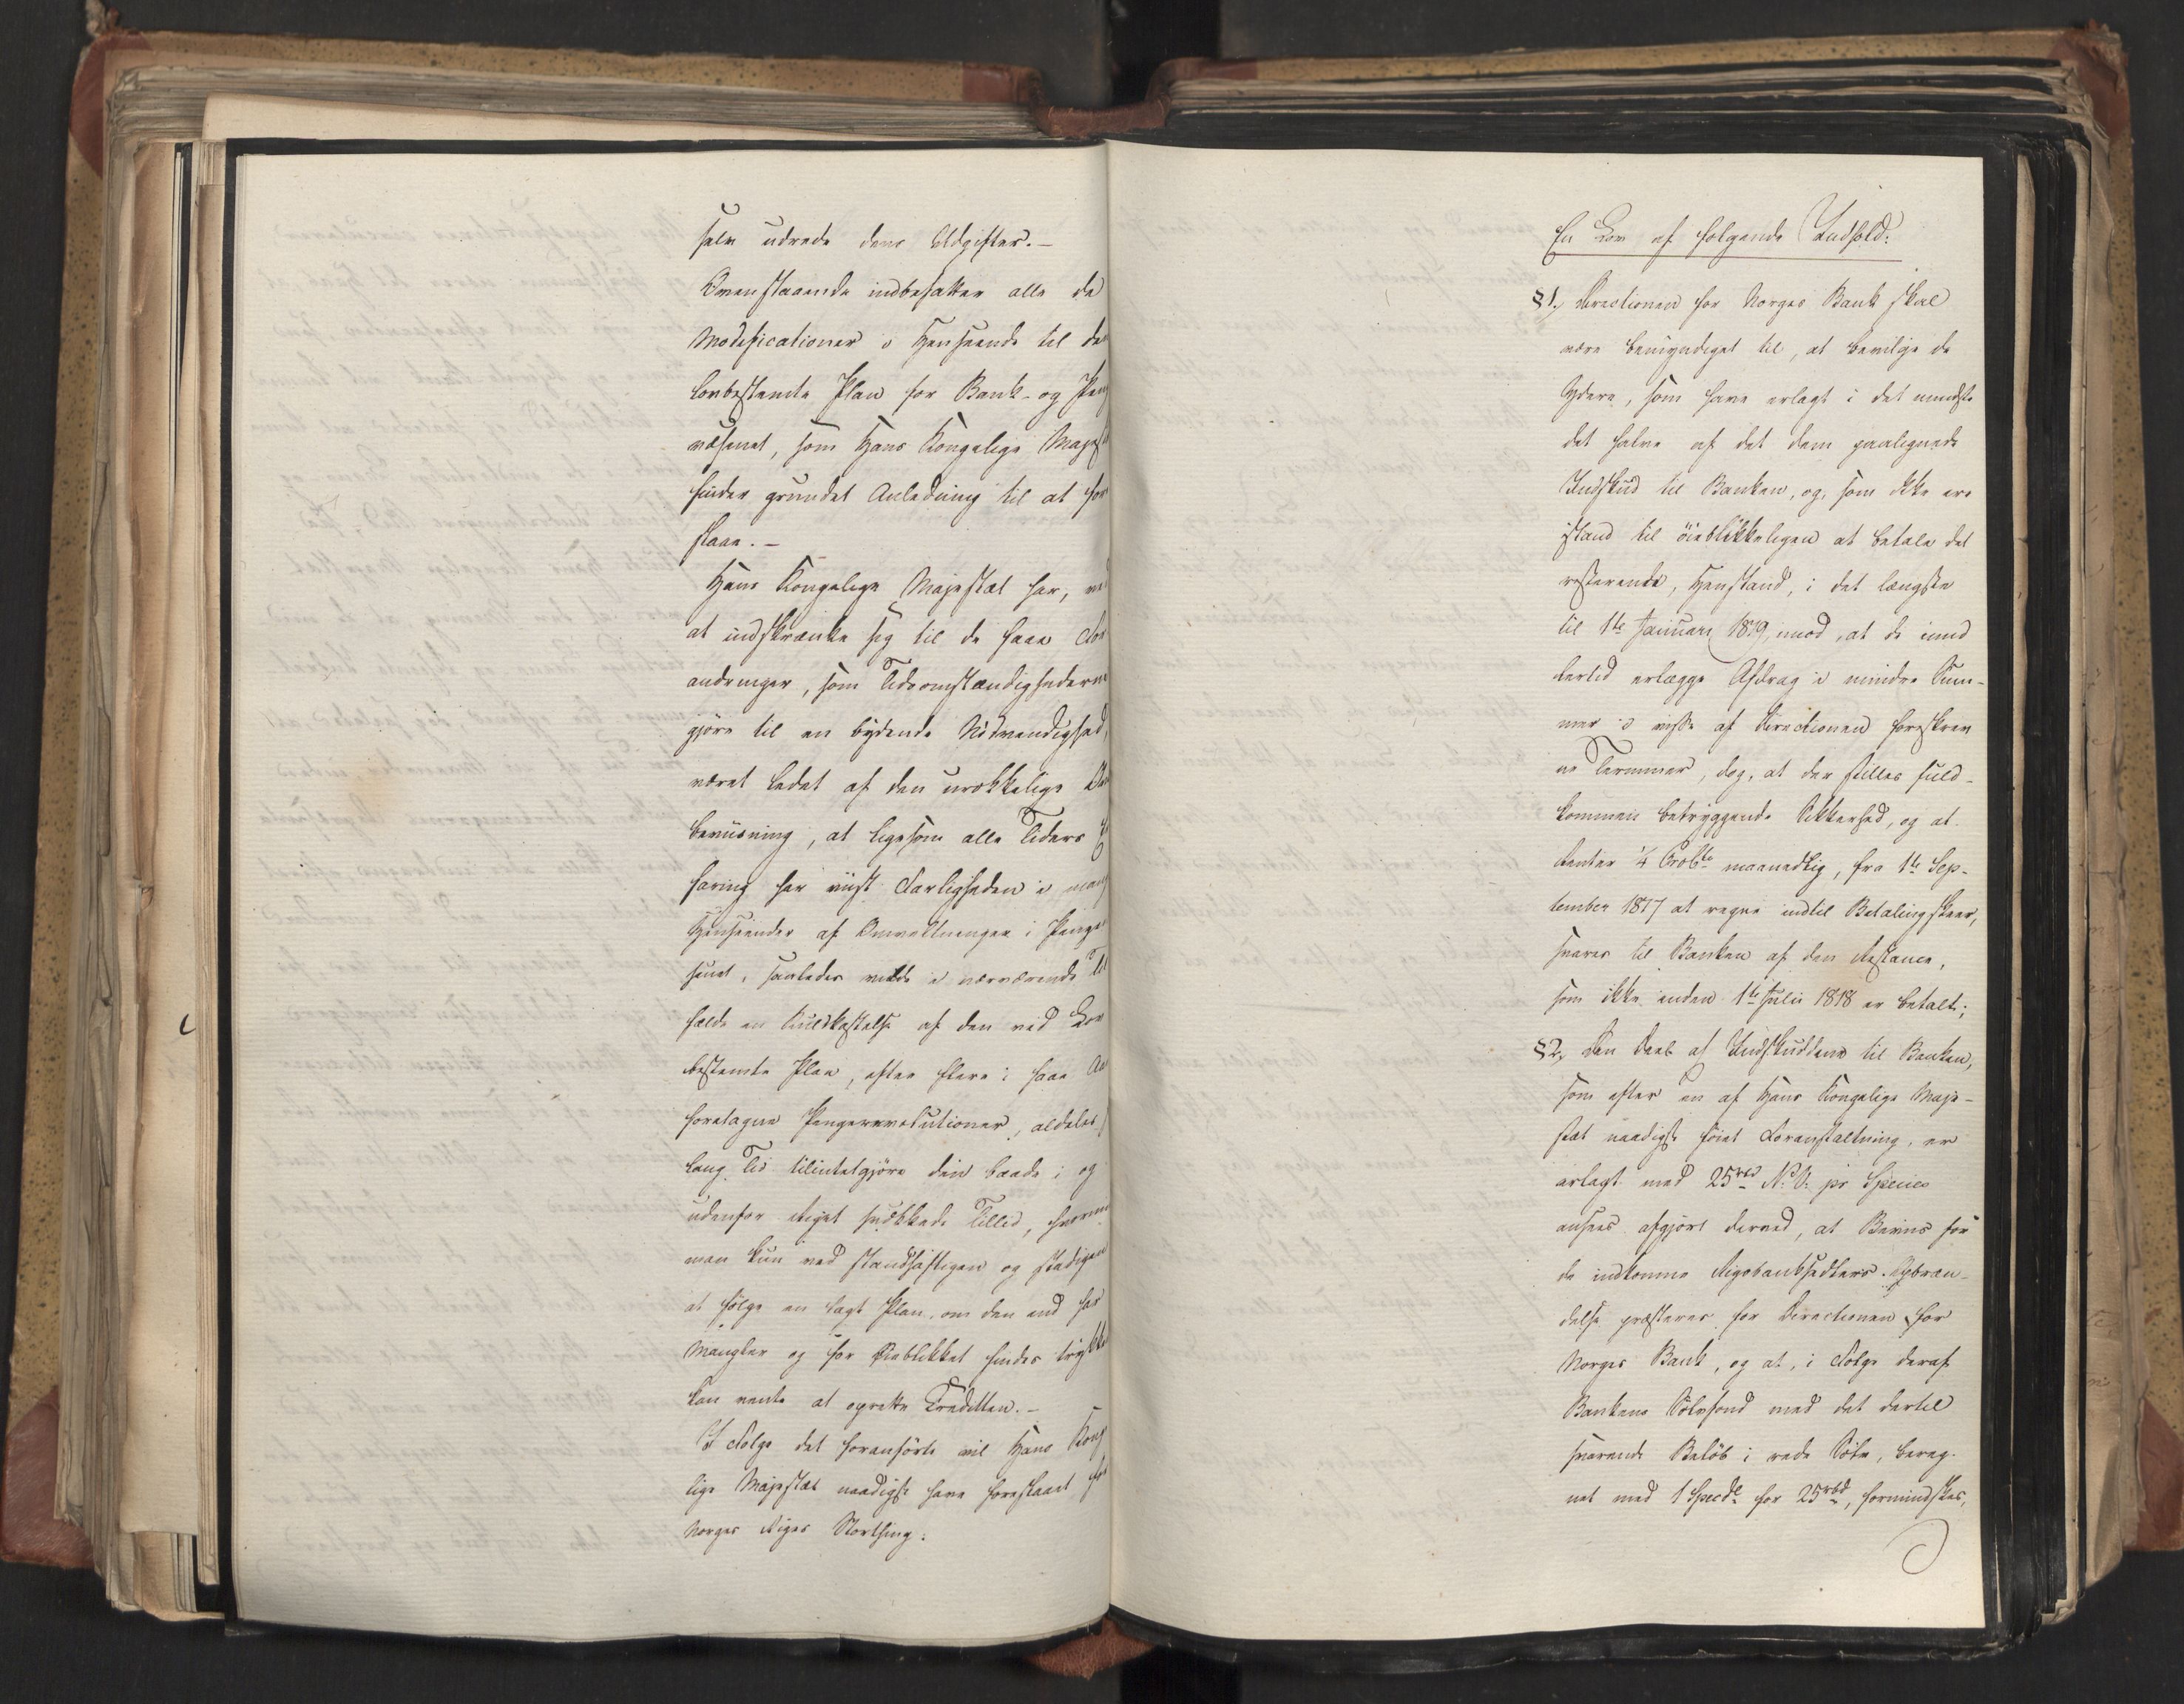 selv udrede dens Udgifter. –
Ovenstaaende indbefatter alle de
Modificationer i Henseende til de
lovbestemte Plan for Bank- og Peng
væsenet, som Hans Kongelige Majest
finder grundet Anledning til at for
slaae. –
Hans Kongelige Majestæt har, ve
at indskrænke sig til de faae For
andringer, som Tidsomstændighederne
gjøre til en bydende Nødvendighed,
været ledet af den urokkelige
beviisning, at ligesom alle Tiders
faring har viist Farligheden i mang
Henseender af Omvæltninger i Penge
senet, saaledes vilde i nærværende Til
fælde en Kuldkastelse af den ved Lov
bestemte Plan, efter flere i faae Aa
foretagne Pengerevolutioner, aldeles
lang Tid tilintetgjøre den baade i og
udenfor Riget svækkede Tillid, hvorim
man kun ved standhaftigen og stadigen
at følge en lagt Plan, om den end har
Mangler og for Øieblikket findes trykke
kan vente at oprette Creditten. –
I Følge det foranførte vil Hans Kong
lige Majestæt naadigst have foreslaaet for
Norges Riges Storthing:
En Lov af følgende Indhold:
§ 1, Directionen for Norges Bank skal
være bemyndiget til, at bevilge de
Ydere, som have erlagt i det mindste
det halve af det dem paalignede
Indskud til Banken, og, som ikke ere
istand til øieblikkeligen at betale det
resterende, Henstand, i det længste
til 1te Januari 1819, mod, at de imid
lertid erlægge Afdrag i mindre Sum-
mer i visse af Directionen foreskrev
ne Terminer, dog, at der stilles fuld-
kommen betryggende Sikkerhed, og at
Renter ¼ Procto maanedlig, fra 1te Sep-
tember 1817 at regne indtil Betaling skeer,
svares til Banken af den Restance,
som ikke inden 1te Julii 1818 er betalt;
§ 2, Den Deel af Indskuddene til Banken,
som efter en af Hans Kongelige Maje-
stæt naadigst føiet Foranstaltning, er
erlagt med 25 rbd N. V. pr Species
ansees afgjort derved, at Beviis for
de indkomne Rigsbanksedlers Opbræn-
delse præsteres for Directionen for
Norges Bank, og at, i Følge deraf
Bankens Sølvfond med det dertil
svarende Beløb i rede Sølv, bereg-
net med 1 Specdr for 25 rbd, formindskes,